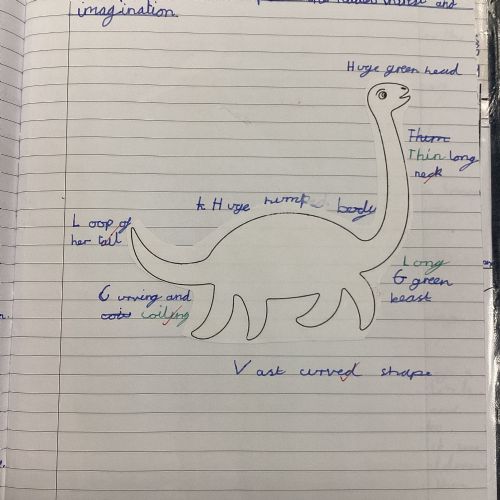 and
imagination.
Huge green head
Them
Thin long
neck
Huge hump body
Loop of
her tail
Long
Green
beast
Curving and
coiling
Vast curved shape